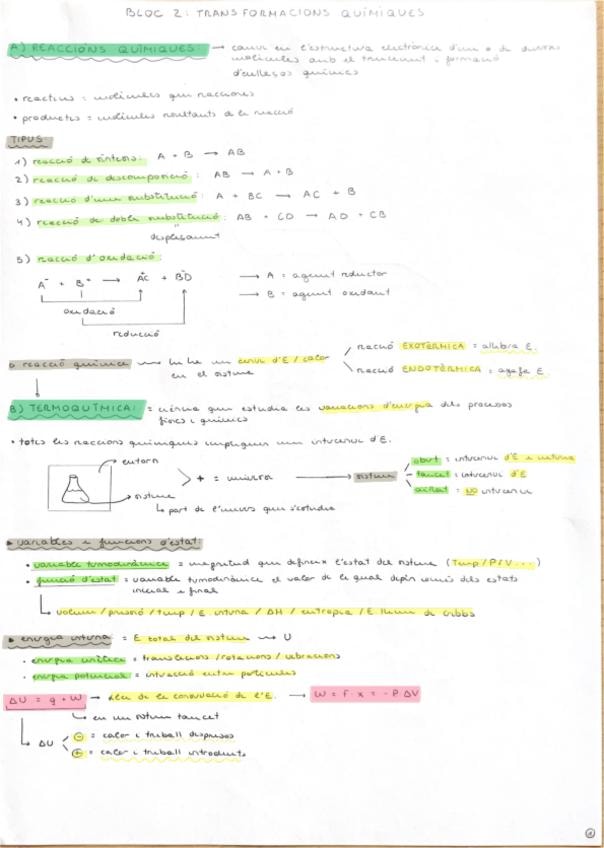 BLOC 2: TRANSFORMACIONS QUÍMIQUES
A) REACCIONS QUÍMIQUES: → canvi en l'estructura electrònica d'un o de diverses
molècules amb el trencament i formació
d'enllaços químics
• reactius = molècules que reaccionen
• productes = molècules resultants de la reacció
TIPUS:
1) reacció de síntesi: A + B → AB
2) reacció de descomposició: AB → A + B
3) reacció d'una substitució: A + BC → AC + B
4) reacció de doble substitució: AB + CD → AD + CB
desplaçament
5) reacció d'oxidació:
A⁻ + B⁺ → AC + BD
→ A = agent reductor
→ B = agent oxidant
oxidació
reducció
reacció química → hi ha un canvi d'E / calor
en el sistema
reacció EXOTÈRMICA = allibera E.
reacció ENDOTÈRMICA = agafa E.
B) TERMOQUÍMICA: = ciència que estudia les variacions d'energia dels processos
físics i químics
• totes les reaccions químiques impliquen un intercanvi d'E.
entorn
sistema
+ = univers → sistema
↳ part de l'univers que s'estudia
obert = intercanvi d'E i matèria
tancat = intercanvi d'E
aïllat = NO intercanvi
▸ variables i funcions d'estat:
• variable termodinàmica = magnitud que defineix l'estat del sistema (Temp/P/V...)
• funció d'estat = variable termodinàmica el valor de la qual depèn només dels estats
inicial i final
↳ volum / pressió / temp / E interna / ΔH / entropia / E lliure de Gibbs
▸ energia interna: = E total del sistema → U
• energia cinètica = translacions / rotacions / vibracions
• energia potencial = interacció entre partícules
ΔU = q + W → llei de la conservació de l'E. → W = F · x = - P ΔV
↳ en un sistema tancat
↳ ΔU
⊖ = calor i treball despresos
⊕ = calor i treball introduïts
1